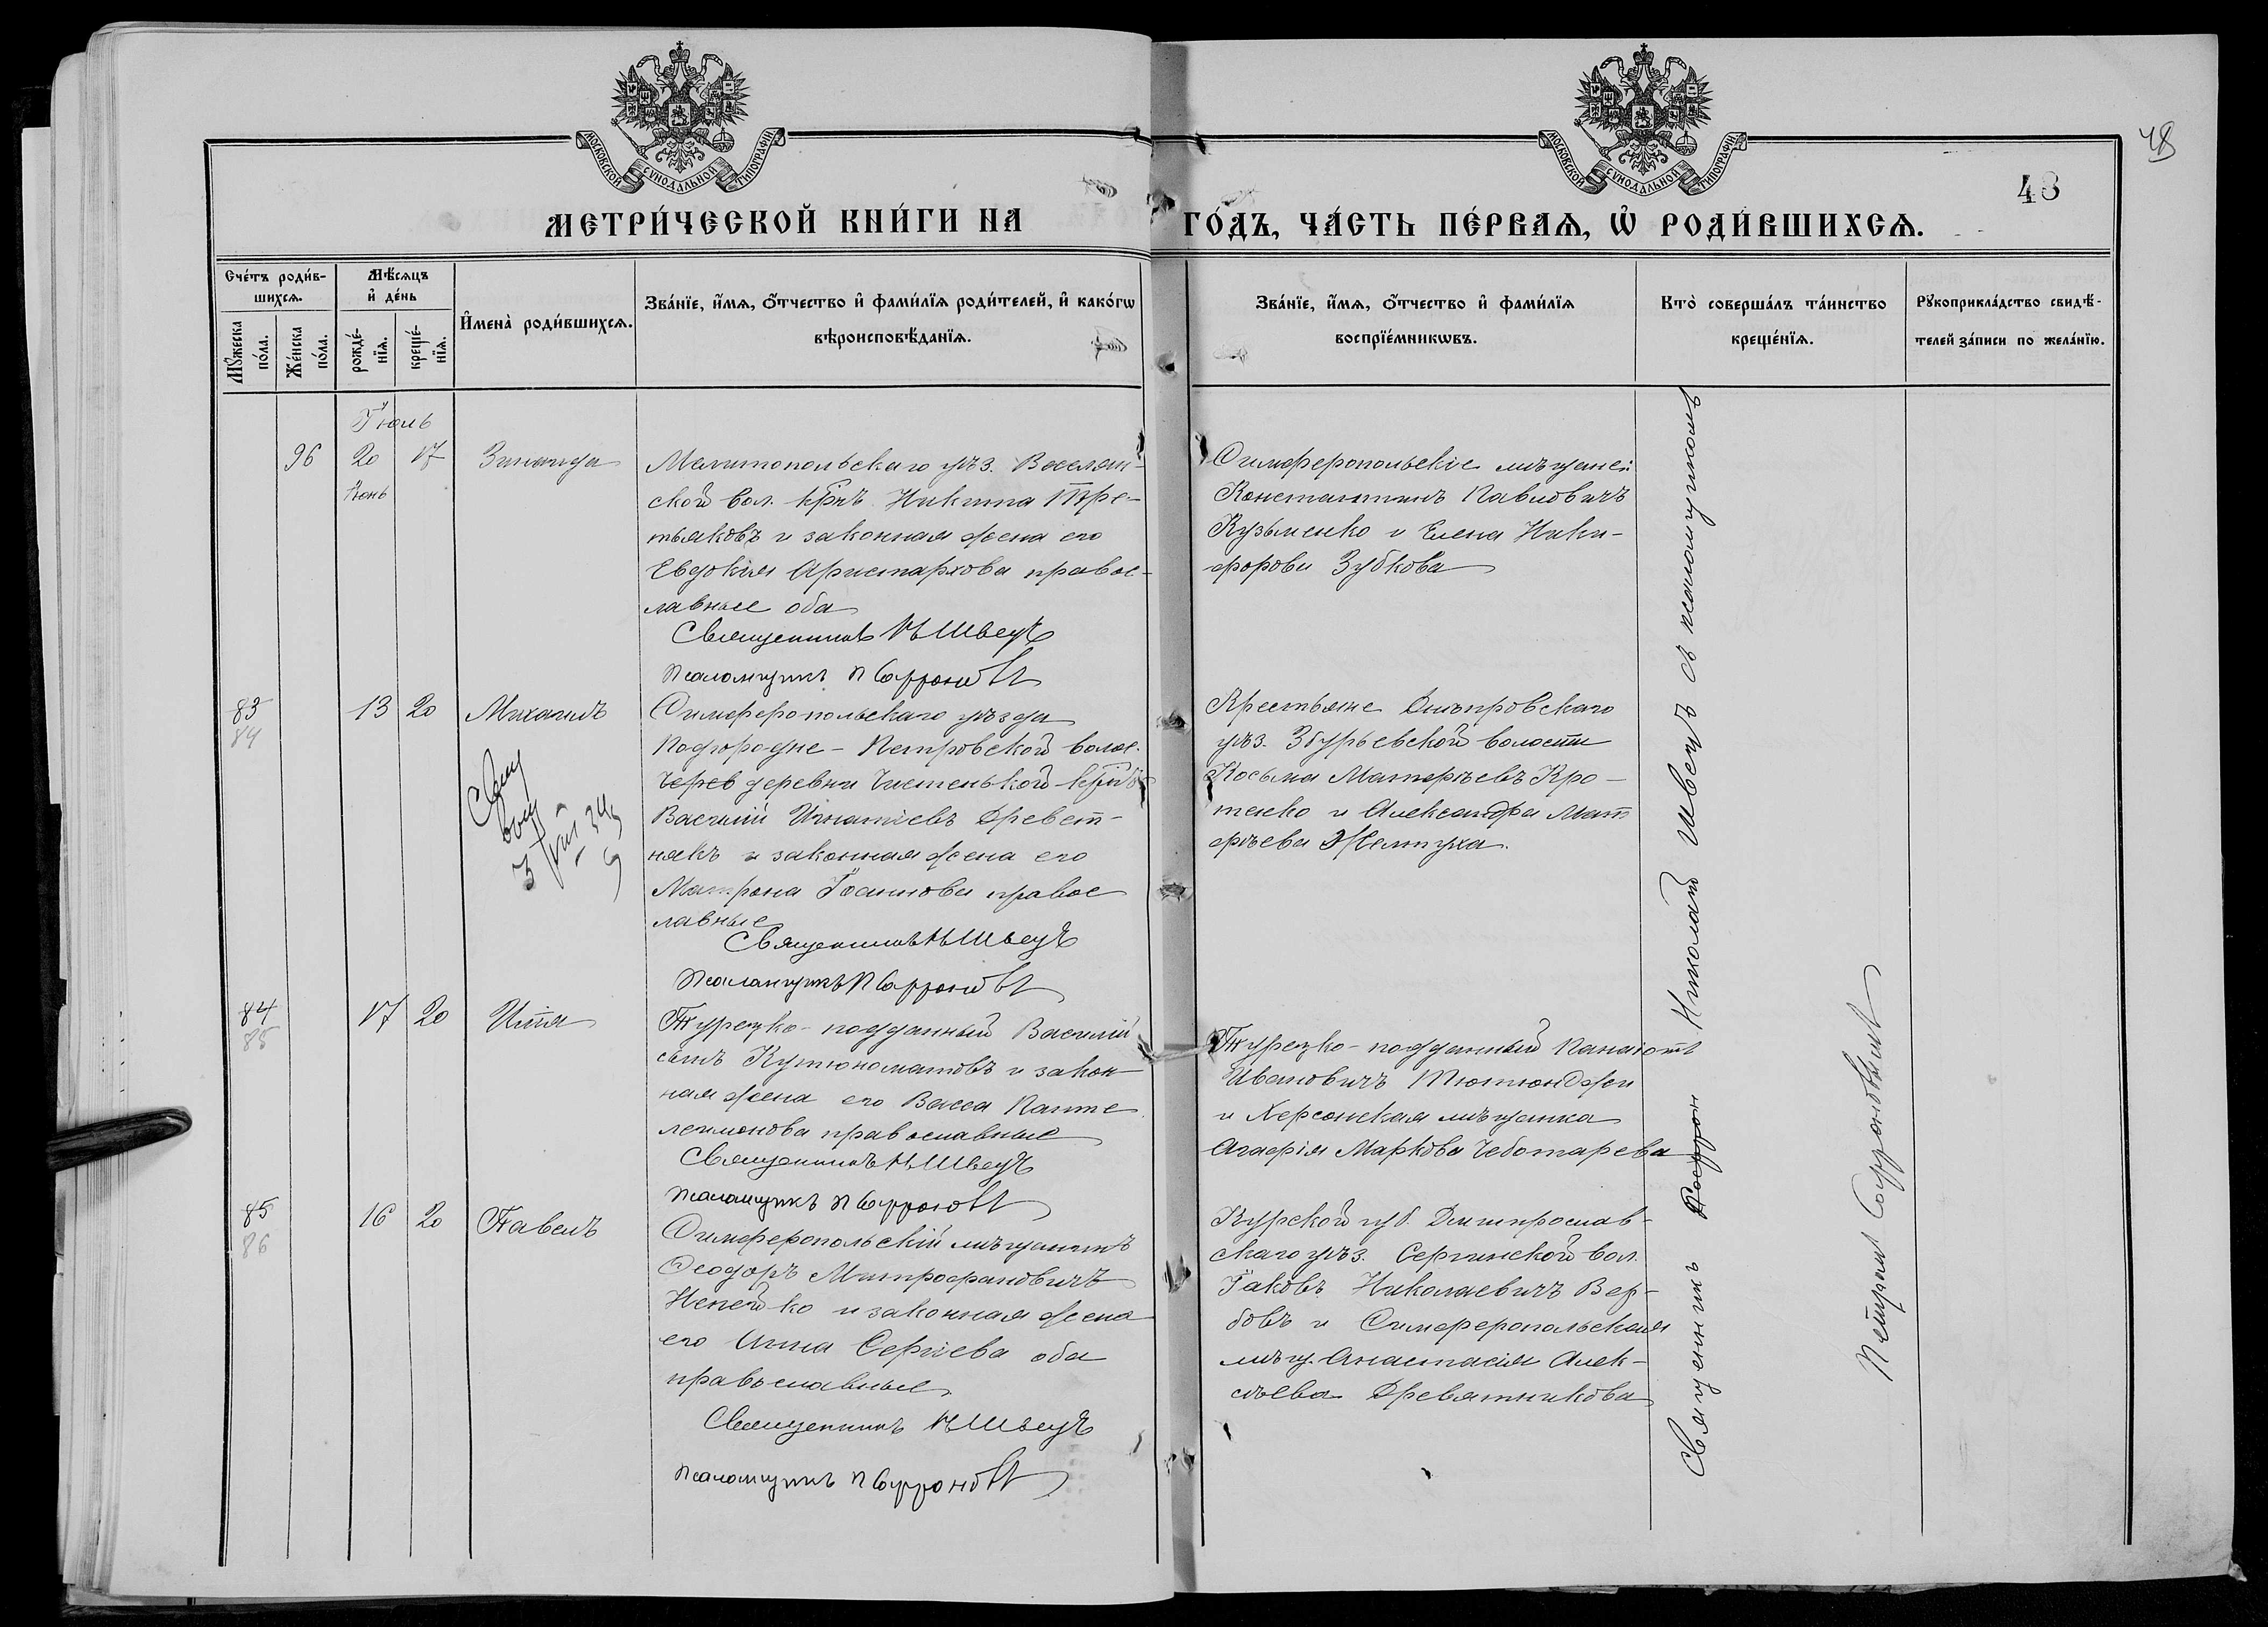 МОСКОВСКОЙ СѴНОДАЛЬНОЙ ТИПОГРАФІИ
МОСКОВСКОЙ СѴНОДАЛЬНОЙ ТИПОГРАФІИ
48
48
МЕТРИ́ЧЕСКОЙ КНИ́ГИ НА
ГО́ДЪ, ЧА́СТЬ ПЕ́РВАѦ, Ѡ҆ РОДИ́ВШИХСѦ.
Сче́тъ роди́в-
шихсѧ.
Мꙋ́жеска
по́ла.
Же́нска
по́ла.
Мѣ́сѧцъ
и҆ де́нь
рожде́-
нїѧ.
креще́-
нїѧ.
И҆мена̀ роди́вшихсѧ.
Зва́нїе, и҆́мѧ, ѻ҆́тчество и҆ фами́лїѧ роди́телей, и҆ како́гѡ
вѣроисповѣ́данїѧ.
Зва́нїе, и҆́мѧ, ѻ҆́тчество и҆ фами́лїѧ
воспрїе́мникѡвъ.
Кто̀ соверша́лъ та́инство
креще́нїѧ.
Рꙋкоприкла́дство свидѣ́-
телей за́писи по жела́нїю.
Іюль
96
20
17
Іюнь
Зинаида
Мелитопольскаго уѣз. Веселян-
ской вол. кр-нъ Никита Тре-
тьяковъ и законная жена его
Евдокія Аристархова правос-
лавные оба
Священникъ Н Швецъ
Псаломщикъ П Софроновъ
Симферопольскіе мѣщане:
Константинъ Павловичъ
Кузьменко и Елена Ники-
форова Зубкова
83
84
13
20
Михаилъ
Симферопольскаго уѣзда
Подгородне-Петровской волос.
деревни Чистенькой
Василій Игнатіевъ Древет-
някъ и законная жена его
Матрона Іоаннова правос
лавные
Священникъ Н Швецъ
Псаломщикъ П Софроновъ
Крестьяне Днѣпровскаго
уѣз. Збурьевской волости
Косьма Матфѣевъ Кро-
тенко и Александра Мат
фѣева Желтуха.
84
85
17
20
Илія
Турецко-подданный Василій
сынъ и закон
ная жена его Васса Панте
леимонова православные
Священникъ Н Швецъ
Псаломщикъ П Софроновъ
Турецко-подданный Панаіотъ
Ивановичъ Тютюнджи
и Херсонская мѣщанка
Агафія Маркова Чеботарева
85
86
16
20
Павелъ
Симферопольскій мѣщанинъ
Ѳеодоръ Митрофановичъ
Непейко и законная жена
его Анна Сергіева оба
православные
Священникъ Н Швецъ
Псаломщикъ П Софроновъ
Курской губ. Дмитрослав-
скаго уѣз. Сергинской вол.
Іаковъ Николаевичъ Вер-
бовъ и Симферопольская
мѣщ. Анастасія Алек-
сѣева Древятникова
Священникъ Николай Швецъ съ псаломщикомъ
Петромъ Софроновымъ